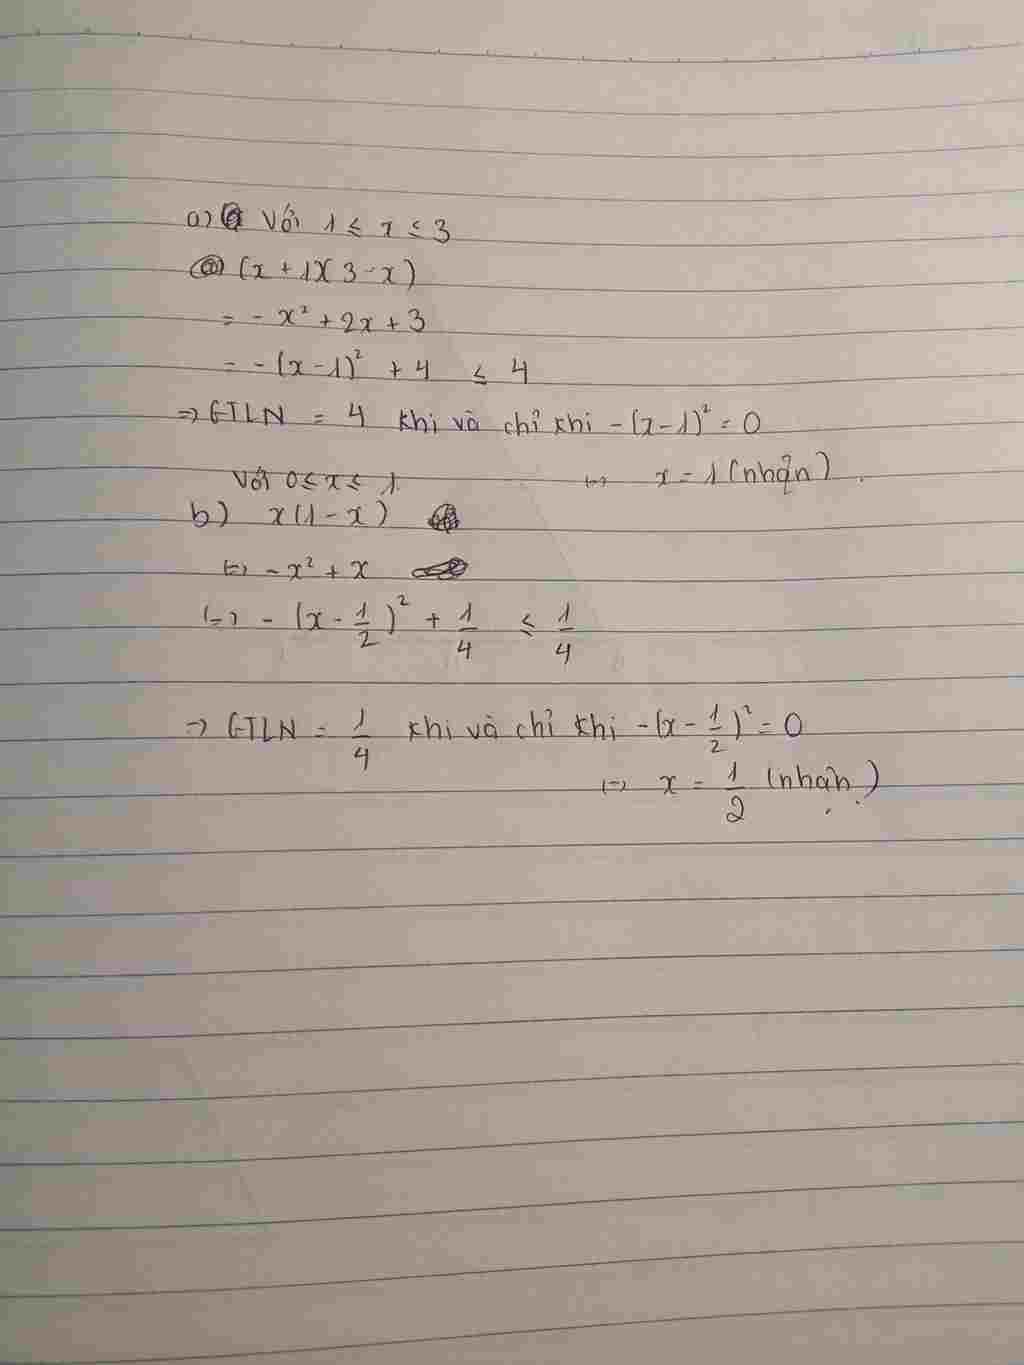 a) Với 1 ≤ x ≤ 3
(x + 1)(3 - x)
= - x² + 2x + 3
= - (x - 1)² + 4 ≤ 4
=> GTLN = 4 khi và chỉ khi - (x - 1)² = 0
<=> x = 1 (nhận)
Với 0 ≤ x ≤ 1
b) x(1 - x)
<=> - x² + x
<=> - (x - 1/2)² + 1/4 ≤ 1/4
=> GTLN = 1/4 khi và chỉ khi - (x - 1/2)² = 0
<=> x = 1/2 (nhận)